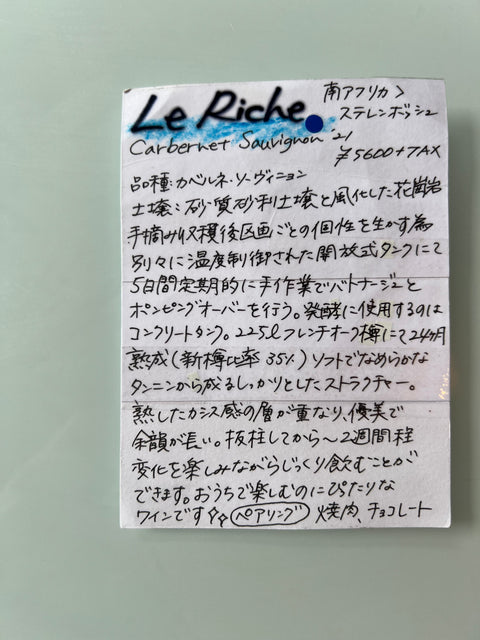 Le Riche. 南アフリカ>
ステレンボッシュ
Carbernet Sauvignon '21
¥5600+TAX
品種:カベルネ・ソーヴィニョン
土壌:砂質砂利土壌と風化した花崗岩
手摘み収穫後区画ごとの個性を生かす為
別々に温度制御された開放式タンクにて
5日間定期的に手作業でバトナージュと
ポンピングオーバーを行う。発酵に使用するのは
コンクリートタンク。225lフレンチオーク樽にて24ヶ月
熟成(新樽比率35%)ソフトでなめらかな
タンニンから成るしっかりとしたストラクチャー。
熟したカシス感の層が重なり、優美で
余韻が長い。抜栓してから〜2週間程
変化を楽しみながらじっくり飲むことが
できます。おうちで楽しむのにぴたりな
ワインです☆☆ ペアリング 焼肉、チョコレート